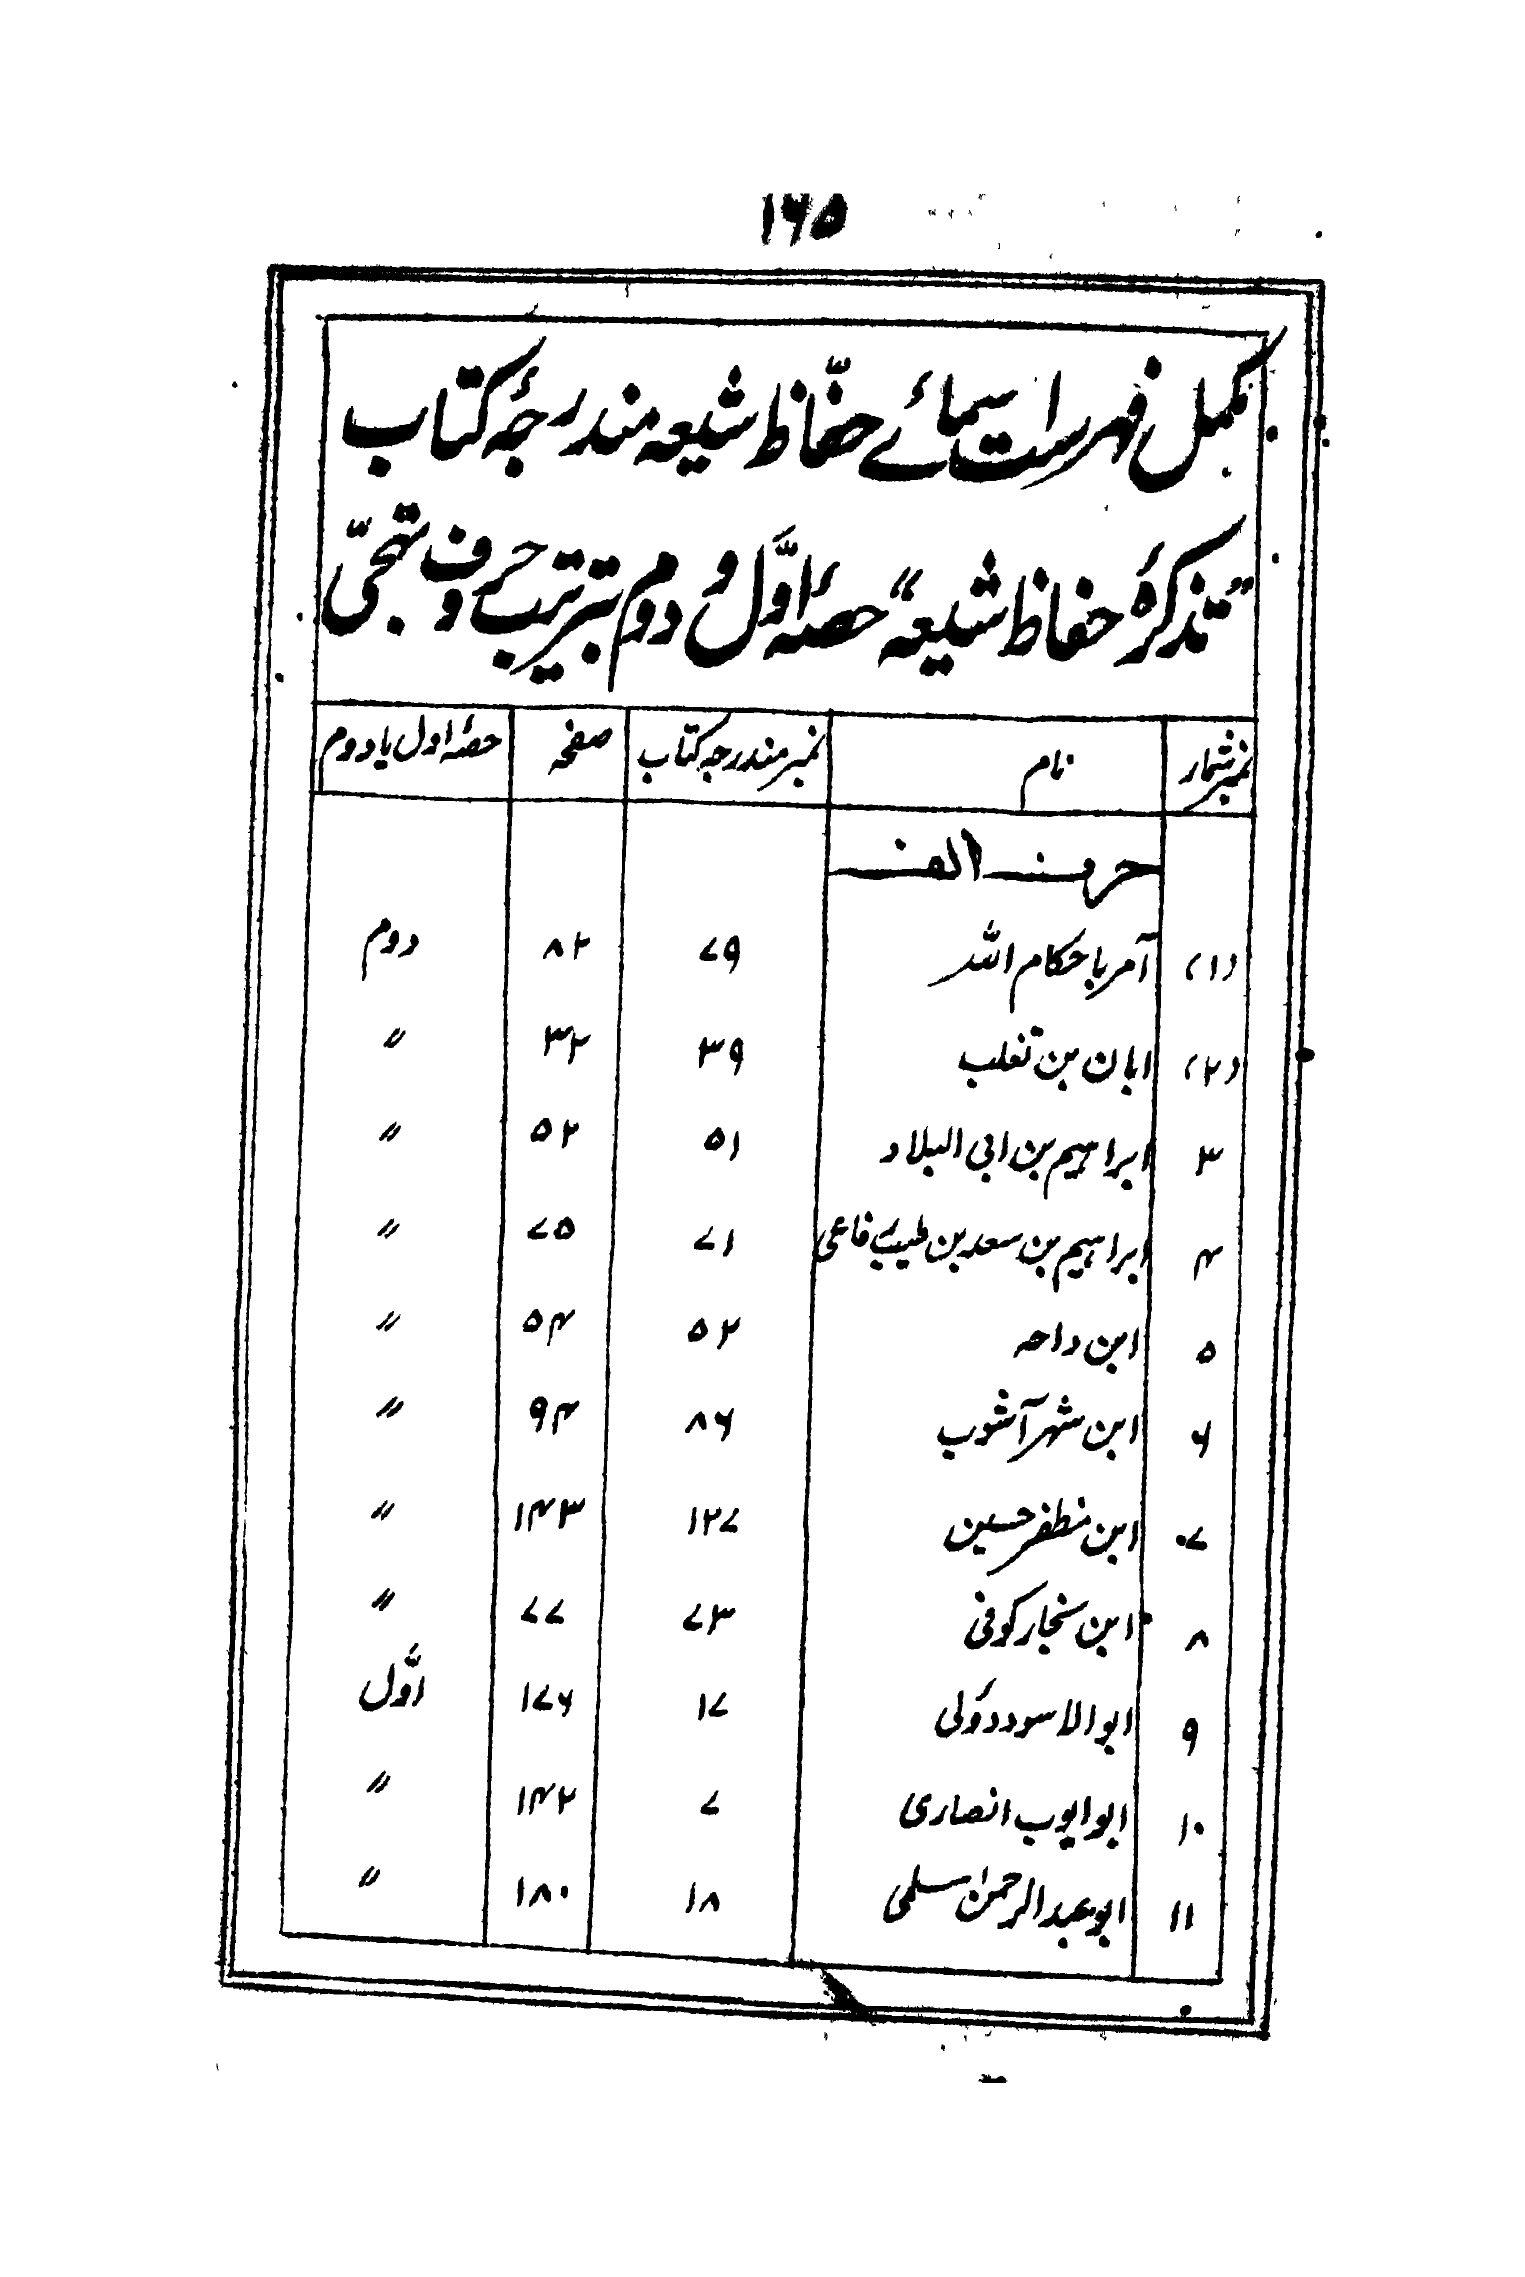 ۱۶۵
مکمل فہرست اسمائے حفّاظ شیعہ مندرجۂ کتاب
"تذکرۂ حفاظ شیعہ" حصۂ اوّل و دوم بترتیب حروف تہجّی
نمبر شمار نام نمبر مندرجہ کتاب صفحہ حصۂ اول یا دوم
حرف الف
(۱) آمر باحکام اللہ ۷۹ ۸۲ دوم
(۲) ابان بن تغلب ۳۹ ۳۲ "
۳ ابراہیم بن ابی البلاد ۵۱ ۵۲ "
۴ ابراہیم بن سعد بن طیب فاعی ۷۱ ۷۵ "
۵ ابن داحہ ۵۲ ۵۴ "
۶ ابن شہر آشوب ۸۶ ۹۴ "
۷ ابن مظفر حسین ۱۲۷ ۱۴۳ "
۸ ابن نجار کوفی ۷۳ ۷۷ "
۹ ابوالاسود دؤلی ۱۷ ۱۷۶ اوّل
۱۰ ابو ایوب انصاری ۷ ۱۴۲ "
۱۱ ابو عبدالرحمٰن سلمی ۱۸ ۱۸۰ "